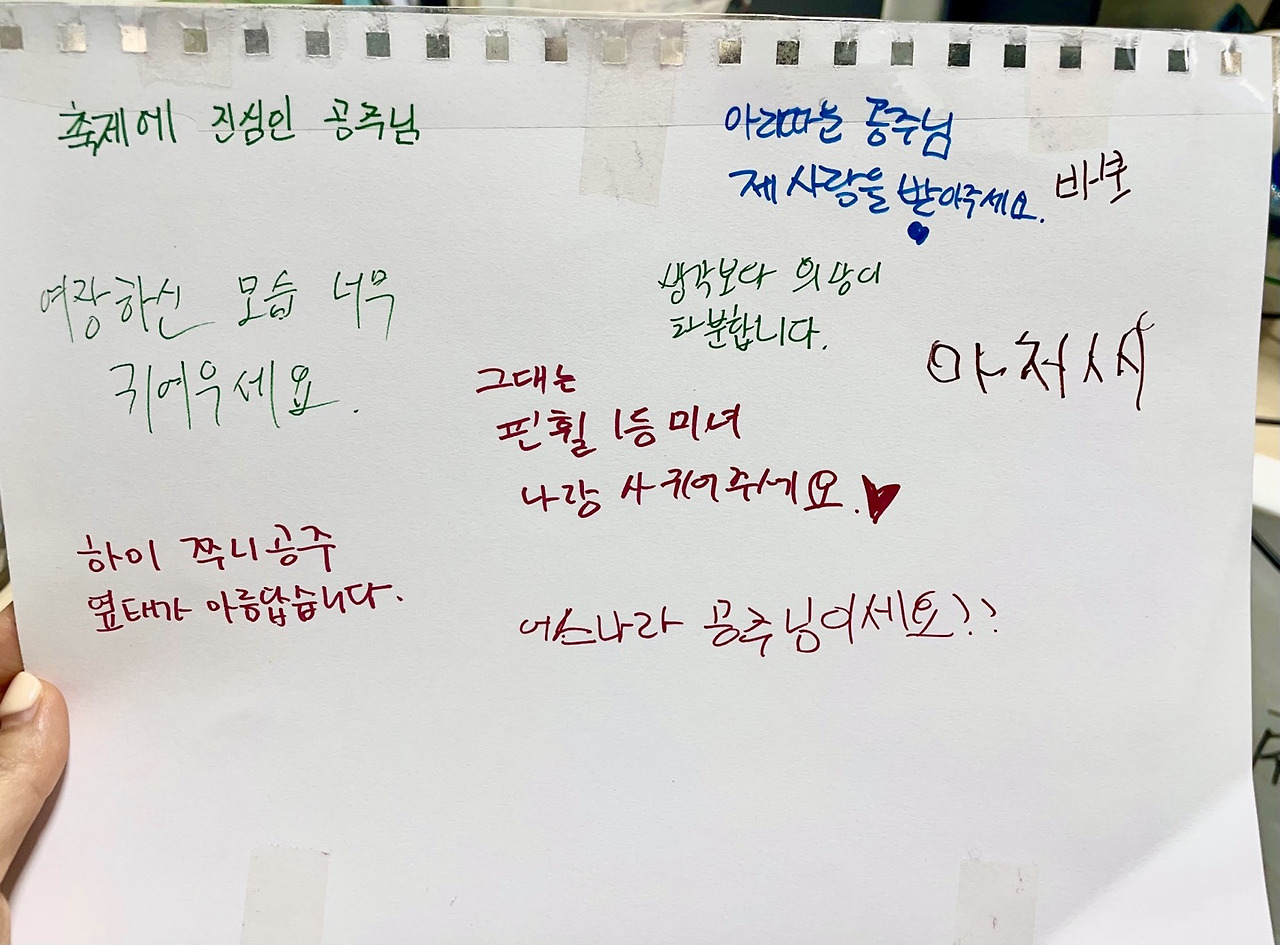 축제에 진심인 공주님
아리따운 공주님
제 사랑을 받아주세요.
여장하신 모습 너무
귀여우세요.
생각보다 의상이
그대는
핀휠 1등 미녀
나랑 사귀어주세요.♥
하이 쭈니공주
옆태가 아름답습니다.
어느나라 공주님이세요??